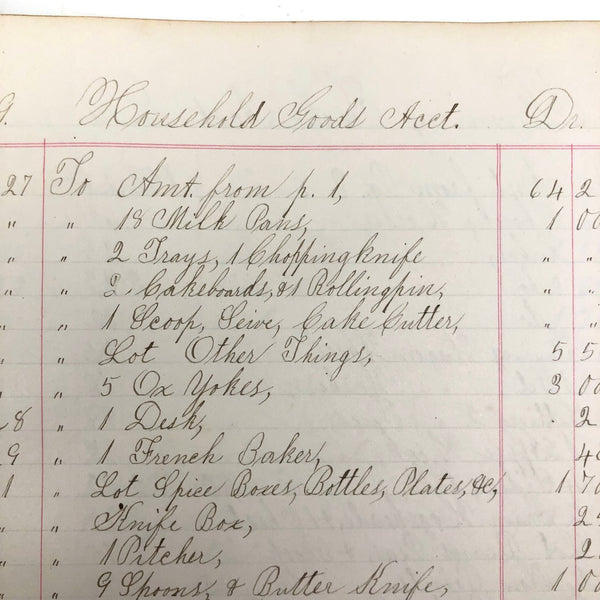 9. Household Goods Acct. Dr.
27 To Amt. from p. 1, 64 2
" " 18 Milk Pans, 1 00
" " 2 Trays, 1 Choppingknife " "
" " 2 Cakeboards, & 1 Rollingpin, " "
" " 1 Scoop, Seive, Cake Cutter, " "
" " Lot Other Things, 5 5
" " 5 Ox Yokes, 3 00
28 " 1 Desk, . 2
9 " 1 French Baker, 40
1 " Lot Spice Boxes, Bottles, Plates, &c, 1 70
" " Knife Box, 25
" " 1 Pitcher, 2
" " 9 Spoons, & Butter Knife, 1 00